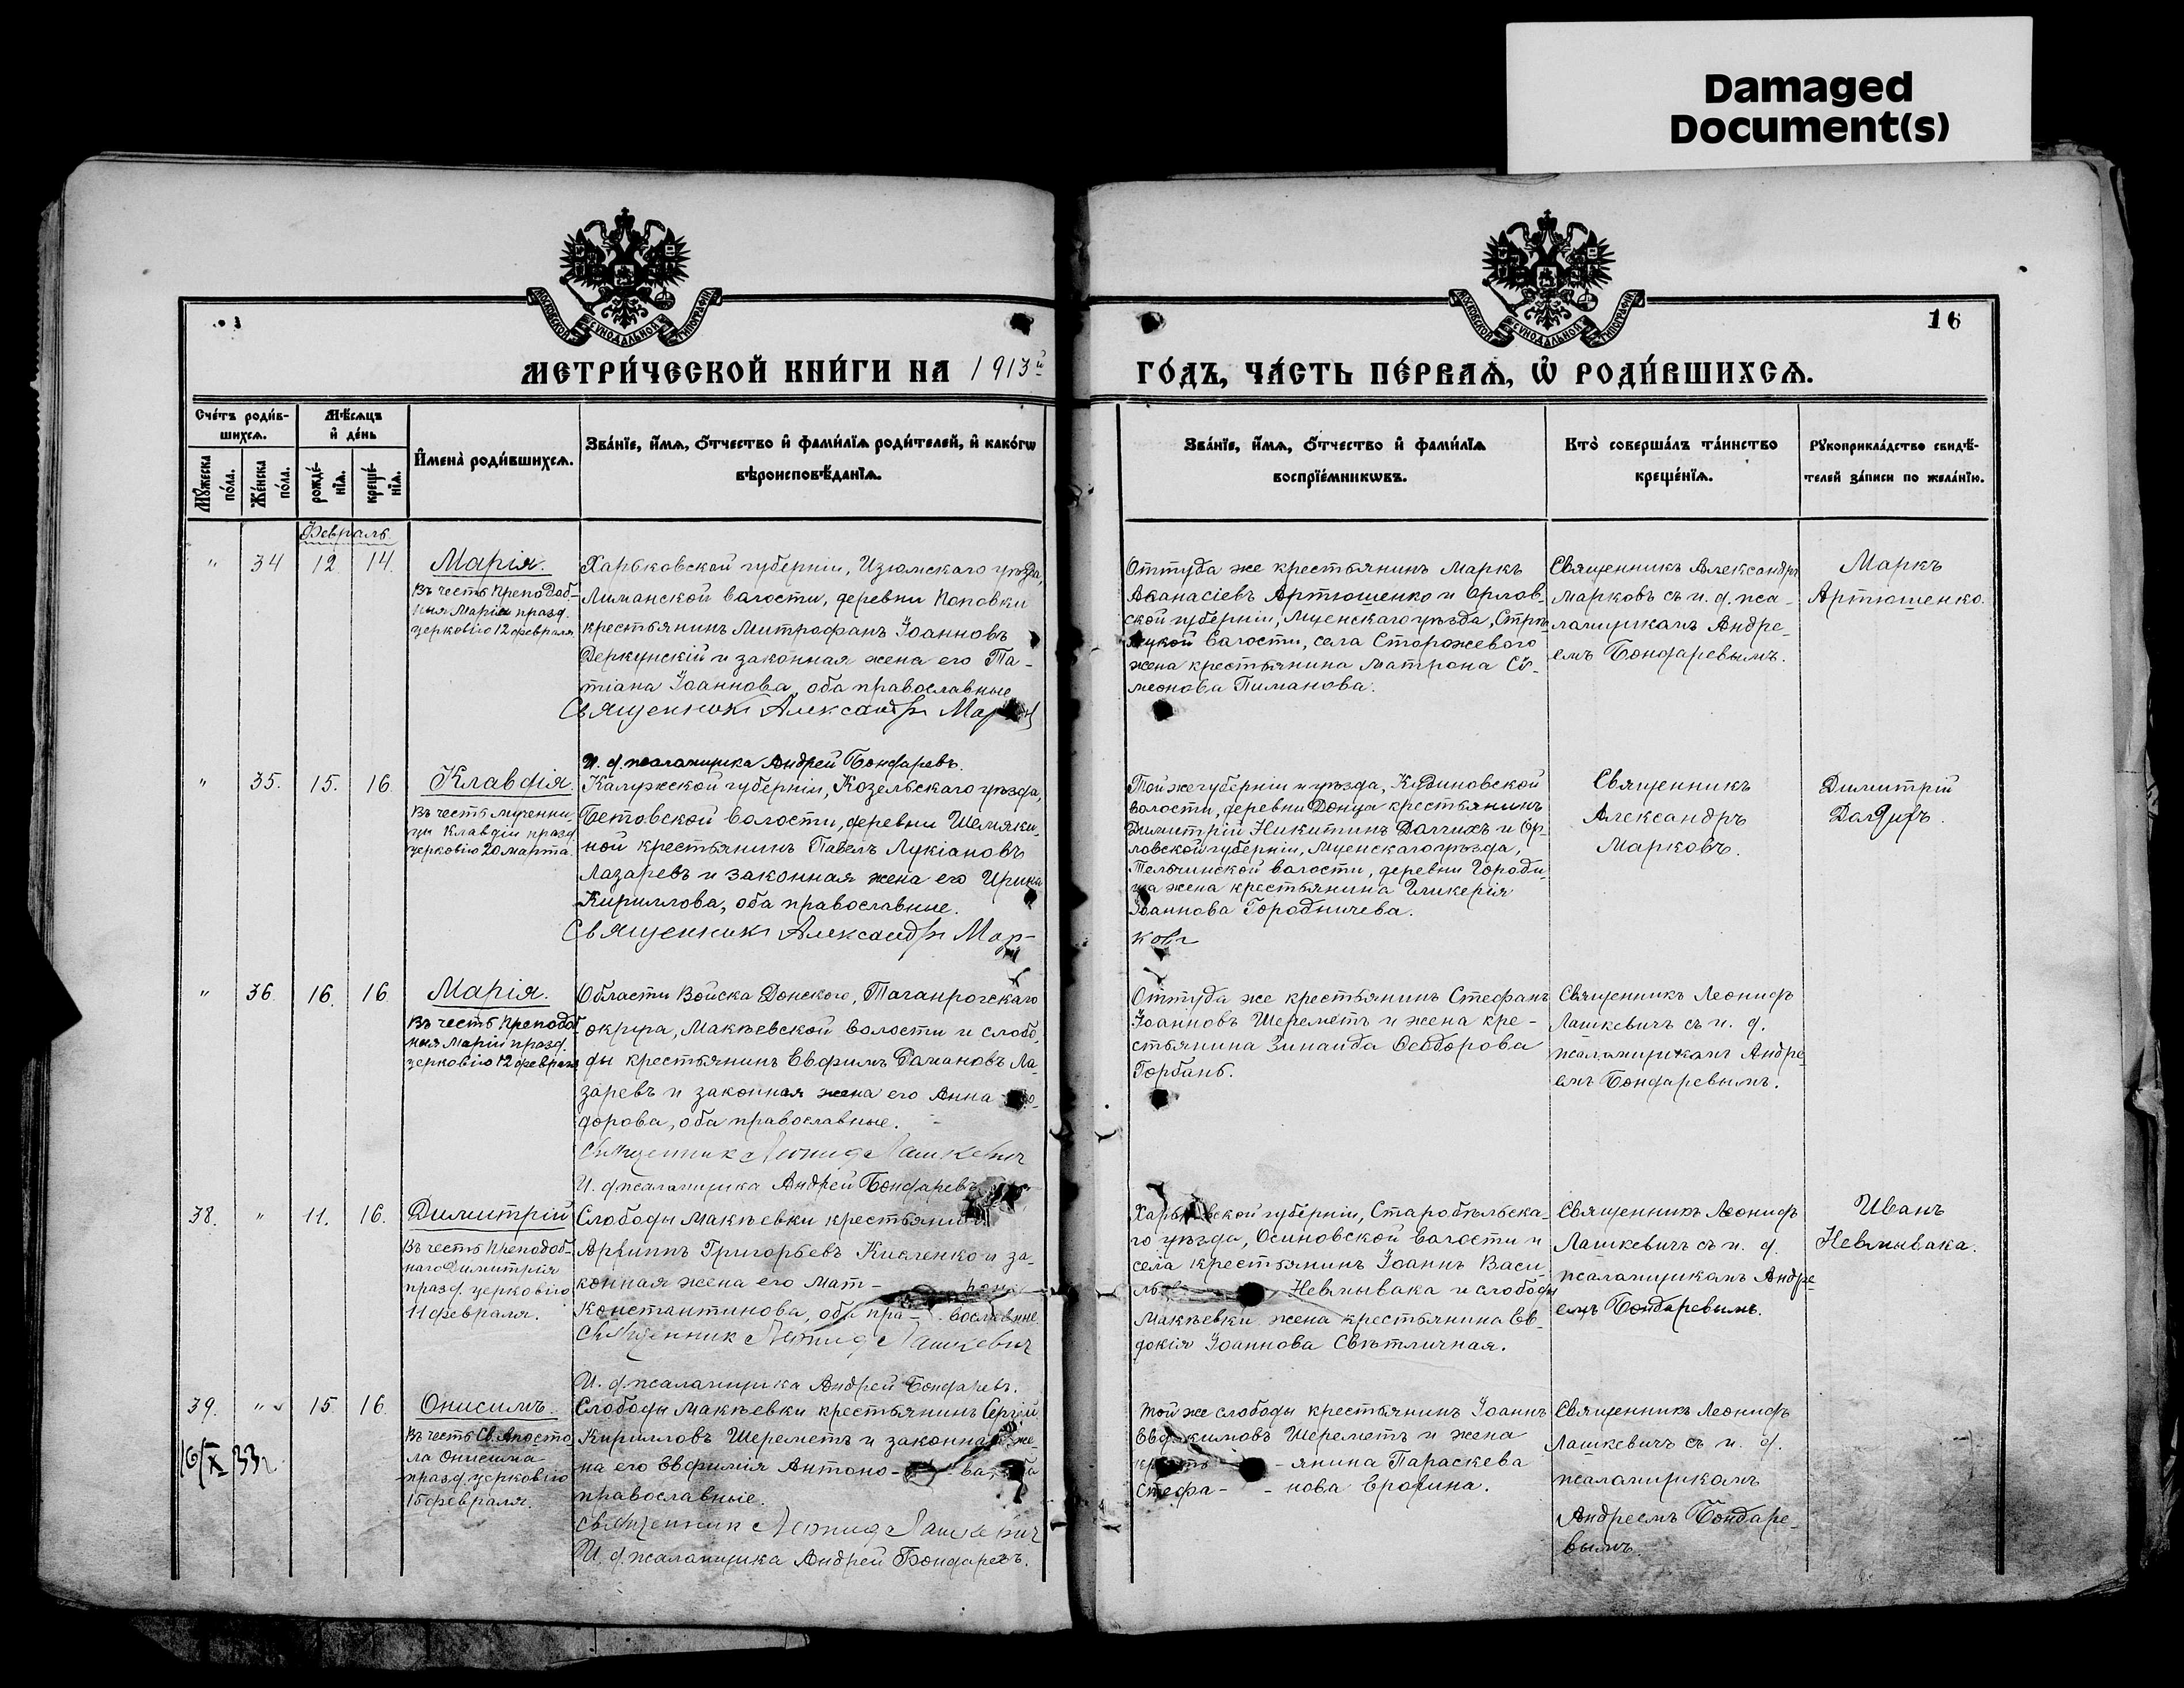 Damaged
Document(s)
МОСКОВСКОЙ СѴНОДАЛЬНОЙ ТИПОГРАФІИ
МОСКОВСКОЙ СѴНОДАЛЬНОЙ ТИПОГРАФІИ
16
МЕТРИ́ЧЕСКОЙ КНИ́ГИ НА 1913й
ГО́ДЪ, ЧА́СТЬ ПЕ́РВАѦ, Ѡ҆ РОДИ́ВШИХСѦ.
Сче́тъ роди́в-
шихсѧ.
Мѣ́сѧцъ
и҆ де́нь
Мꙋ́жеска
по́ла.
Же́нска
по́ла.
рожде́-
нїѧ.
креще́-
нїѧ.
И҆мена̀ роди́вшихсѧ.
Зва́нїе, и҆́мѧ, ѻ҆́тчество и҆ фами́лїѧ роди́телей, и҆ како́гѡ
вѣроисповѣ́данїѧ.
Зва́нїе, и҆́мѧ, ѻ҆́тчество и҆ фами́лїѧ
воспрїе́мникѡвъ.
Кто̀ соверша́лъ та́инство
креще́нїѧ.
Рꙋкоприкла́дство свидѣ́-
телей за́писи по жела́нїю.
Февраль.
" 34 12. 14. Марія.
Въ честь преподоб-
ныя Маріи празд.
церковію 12 февраля
Харьковской губерніи, Изюмскаго уѣзда,
Лиманской волости, деревни Поповки
крестьянинъ Митрофанъ Іоанновъ
Деркунскій и законная жена его Та-
тіана Іоаннова, оба православные
Священникъ Александръ
И. д. псаломщика Андрей Бондаревъ.
Оттуда же крестьянинъ Маркъ
Аѳанасіевъ Артюшенко и Орлов-
ской губерніи, Мценскаго уѣзда,
волости, села Сторожевого
жена крестьянина Матрона Си-
меонова Пиманова.
Священникъ Александръ
Марковъ съ и. д. пса-
ломщикомъ Андре-
емъ Бондаревымъ.
Маркъ
Артюшенко.
" 35. 15. 16. Клавдія.
Въ честь мучени-
цы Клавдіи празд
церковію 20 марта.
Калужской губерніи, Козельскаго уѣзда,
Бетовской волости, деревни Шемяки-
ной крестьянинъ Павелъ Лукіановъ
Лазаревъ и законная жена его Ирина
Кириллова, оба православные.
Священникъ Александръ Мар-
Той же губерніи и уѣзда,
волости, деревни Донца крестьянинъ
Димитрій Никитинъ Долгихъ и Ор-
ловской губерніи, Мценскаго уѣзда,
Тельчинской волости, деревни Городи-
ща жена крестьянина Гликерія
Іоаннова Городничева.
ковъ
Священникъ
Александръ
Марковъ.
Димитрій
" 36. 16. 16 Марія.
Въ честь преподоб
ныя Маріи празд.
церковію 12 февраля
Области Войска Донского, Таганрогскаго
округа, Макѣевской волости и слобо-
ды крестьянинъ Евфимъ Романовъ Ла-
заревъ и законная жена его Анна
дорова, оба православные.
Священник Леонид Лашкевич
И. д. псаломщика Андрей Бондаревъ
Оттуда же крестьянинъ Стефанъ
Іоанновъ Шереметъ и жена кре-
стьянина Зинаида Ѳеодорова
Горбань.
Священникъ Леонидъ
Лашкевичъ съ и. д.
псаломщикомъ Андре
емъ Бондаревымъ.
38. " 11. 16. Димитрій
Въ честь преподоб-
наго Димитрія
празд. церковію
11 февраля.
Слободы Макѣевки крестьянинъ
Архиппъ Григорьевъ Кикленко и за-
конная жена его Мат- рона
Константинова, оба пра- вославные.
Священник Леонид Лашкевич
И. д. псаломщика Андрей Бондаревъ.
Харьковской губерніи, Старобѣльска-
го уѣзда, Осиновской волости и
села крестьянинъ Іоаннъ Васи-
Невмывака и слободы
Макѣевки жена крестьянина Ев-
докія Іоаннова Свѣтличная.
Священникъ Леонидъ
Лашкевичъ съ и. д.
псаломщикомъ Андре-
емъ Бондаревымъ.
Иванъ
Невмывака.
39. " 15. 16. Онисимъ.
Въ честь Св. Апосто
ла Онисима
празд. церковію
15 февраля.
Слободы Макѣевки крестьянинъ Сергій
Кирилловъ Шереметъ и законная же-
на его Евфимія Антоно- ва, оба
православные.
Священник Леонид Лашкевич
И. д. псаломщика Андрей Бондаревъ.
Той же слободы крестьянинъ Іоаннъ
Евдокимовъ Шереметъ и жена
крестъ - янина Параскева
Стефа- - нова Ерохина.
Священникъ Леонидъ
Лашкевичъ съ и. д.
псаломщикомъ
Андреемъ Бондаре-
вымъ.